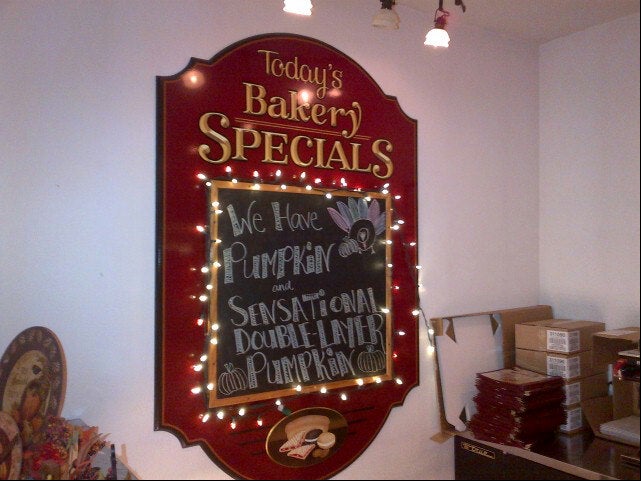 Today's
Bakery
SPECIALS
We Have
Pumpkin
and
Sensational
Double-Layer
Pumpkin